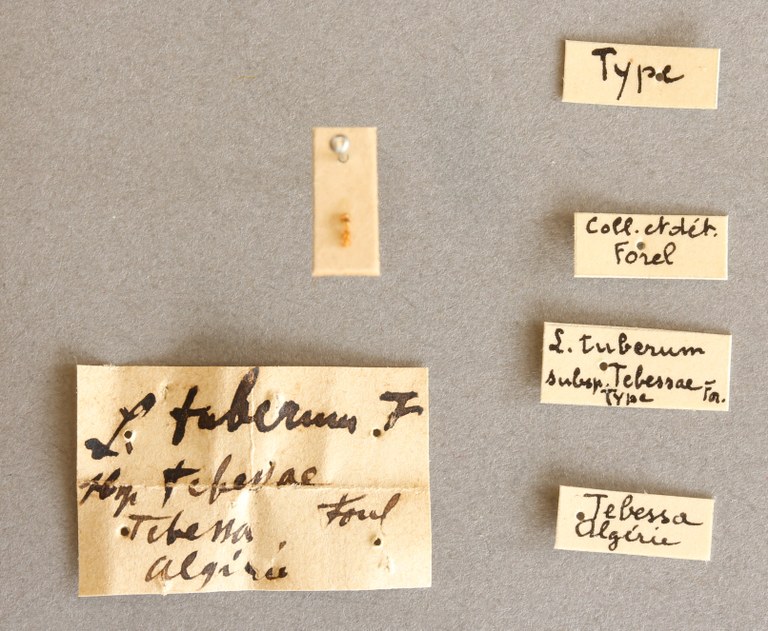 Type
Coll. et dét.
Forel
L. tuberum
subsp. Tebessae For.
Type
Tebessa
Algérie
L. tuberum F
Tebessae
Tebessa Forel
Algérie